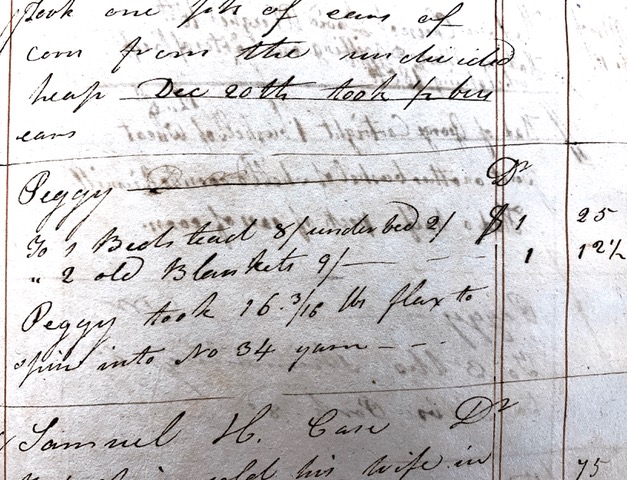 Took one of ears of
corn from the undivided
heap Dec 20th took 1/2 bus
ears
Peggy Dr
To 1 Bedstead 8/ under bed 2/ $1 25
" 2 old Blankets 9/ 1 12 1/2
Peggy took 16 3/16 lbs flax to
spin into No 34 yarn
Samuel H. Case Dr
sold his wife in 75